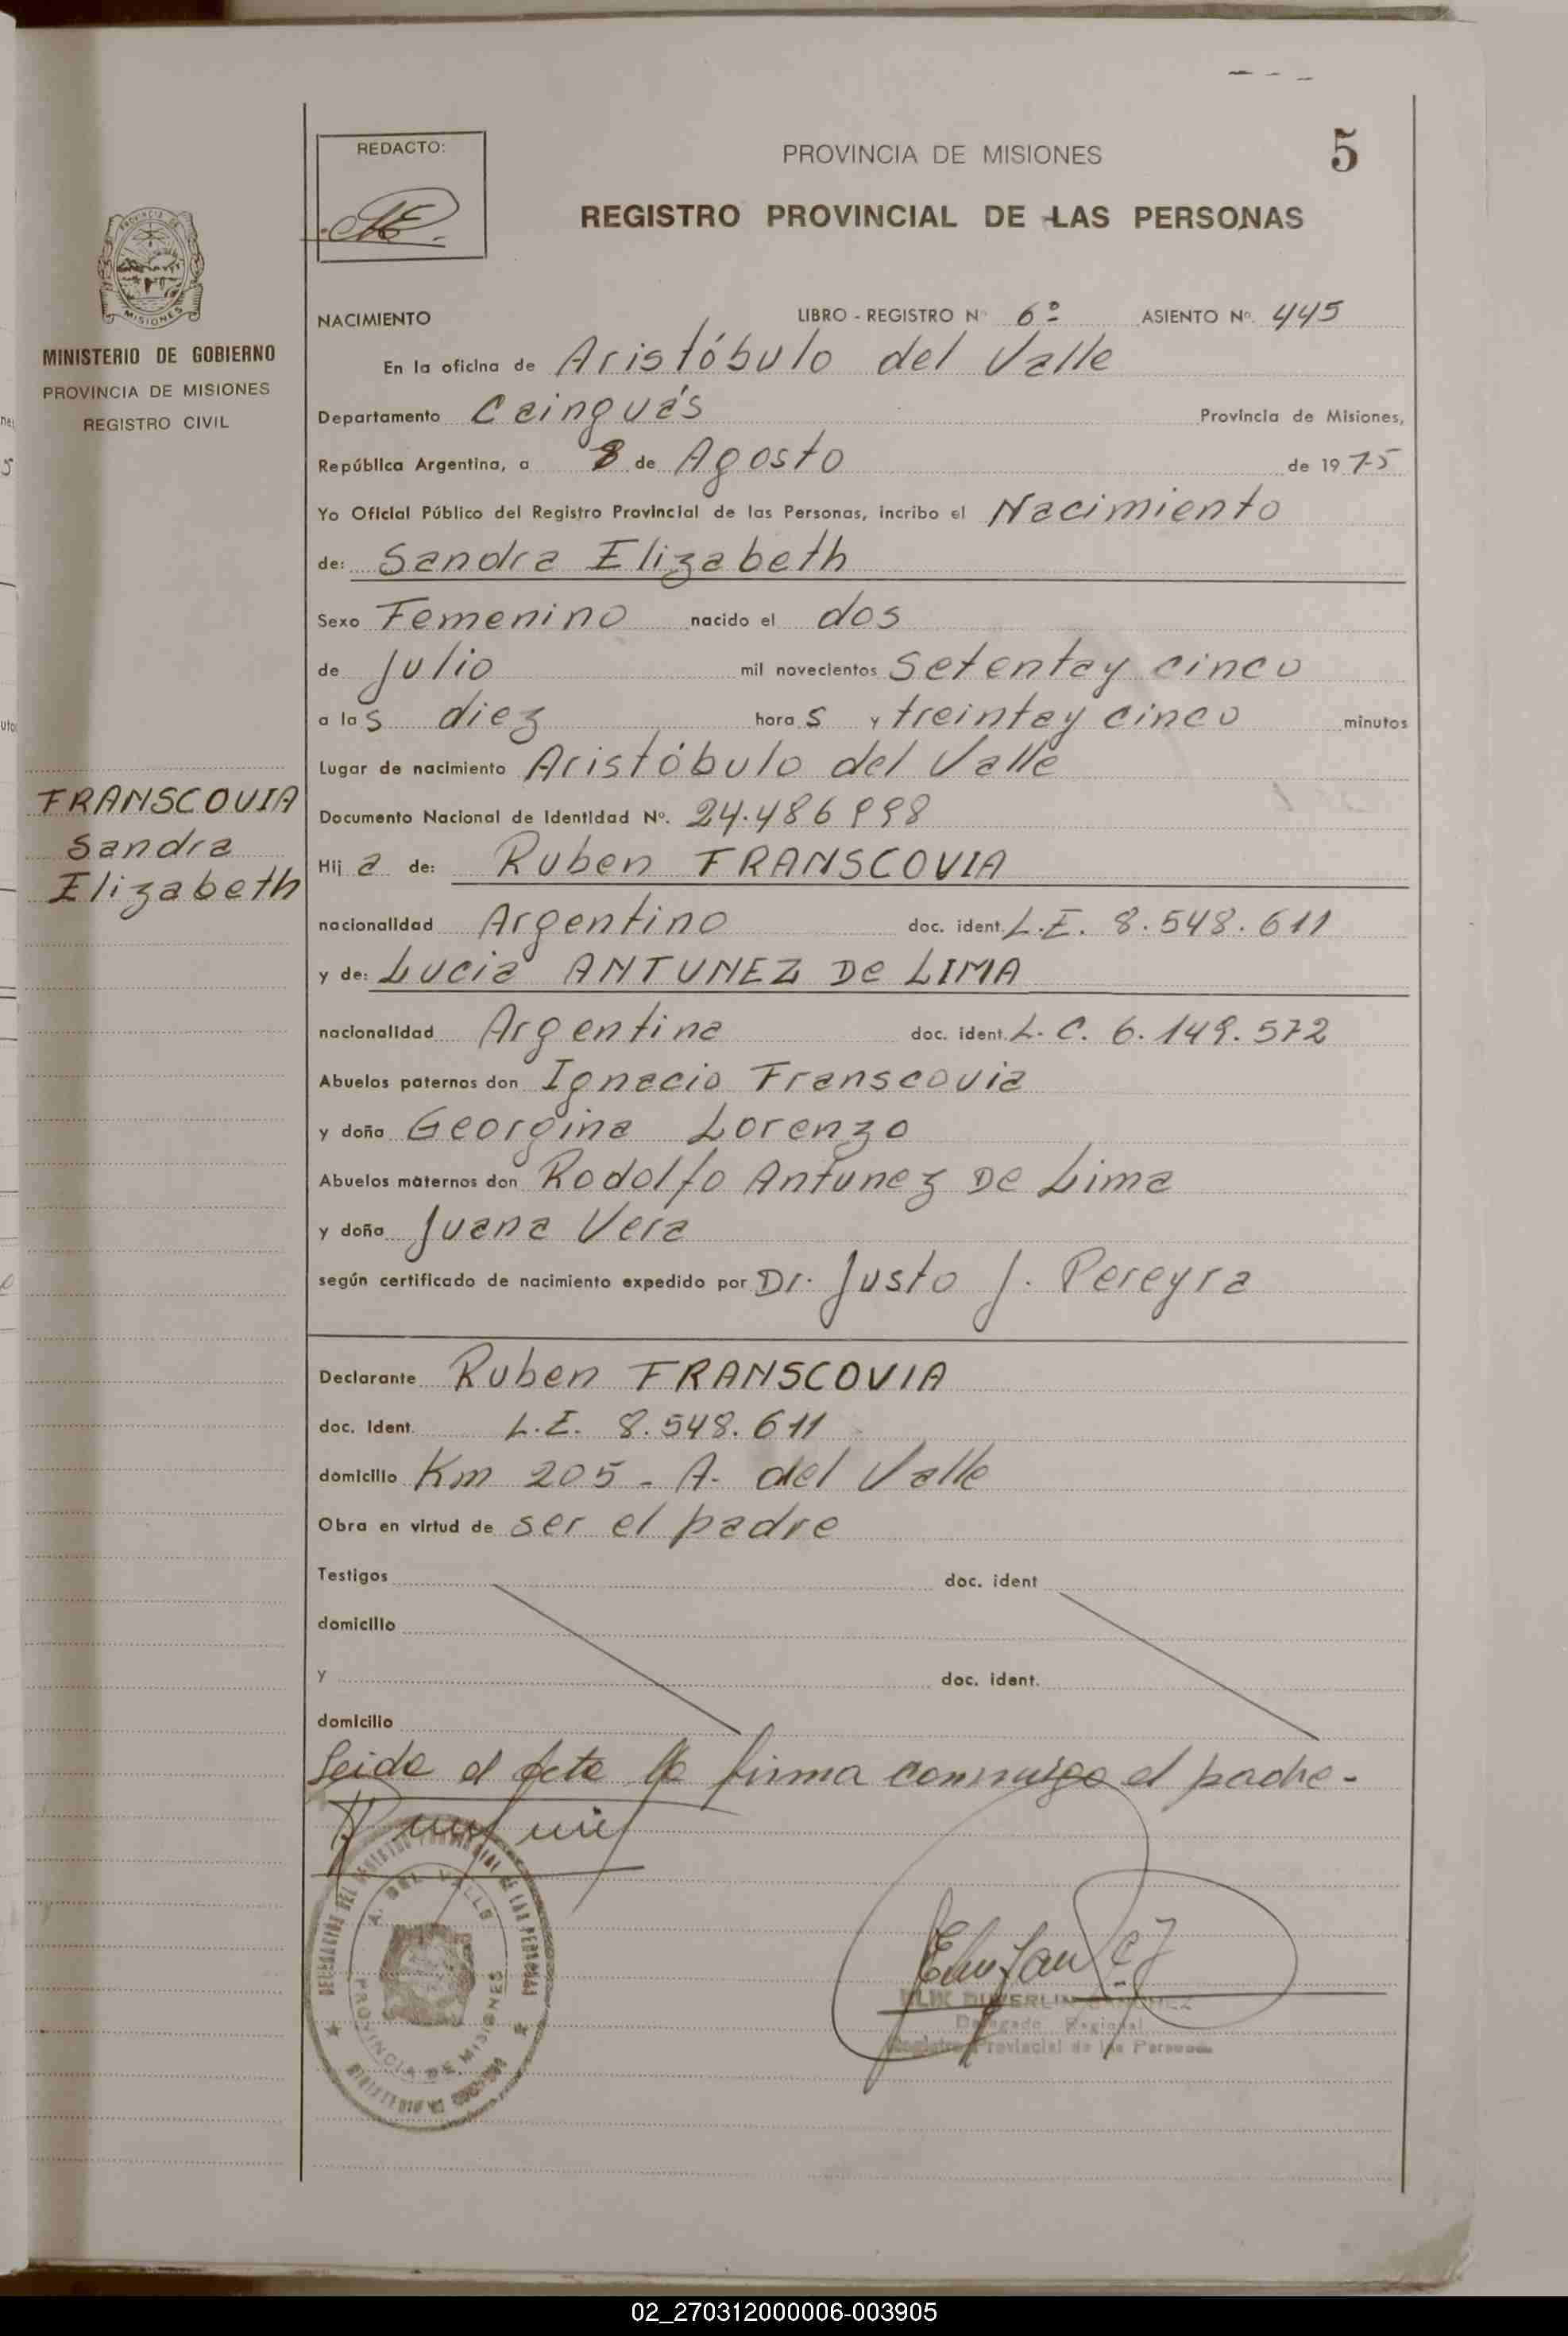 5
REDACTO:
PROVINCIA DE MISIONES
REGISTRO PROVINCIAL DE LAS PERSONAS
PROVINCIA DE
MISIONES
MINISTERIO DE GOBIERNO
PROVINCIA DE MISIONES
REGISTRO CIVIL
FRANSCOVIA
Sandra
Elizabeth
NACIMIENTO LIBRO - REGISTRO Nº 6º ASIENTO Nº. 445
En la oficina de Aristóbulo del Valle
Departamento Cainguás Provincia de Misiones,
República Argentina, a 8 de Agosto de 1975
Yo Oficial Público del Registro Provincial de las Personas, incribo el Nacimiento
de: Sandra Elizabeth
Sexo Femenino nacido el dos
de Julio mil novecientos setentay cinco
a las diez horas y treintay cinco minutos
Lugar de nacimiento Aristóbulo del Valle
Documento Nacional de Identidad Nº. 24.486
Hija de: Ruben FRANSCOVIA
nacionalidad Argentino doc. ident. L.E. 8.548.611
y de: Lucia ANTUNEZ De LIMA
nacionalidad Argentina doc. ident. L.C. 6.149.572
Abuelos paternos don Ignacio Franscovia
y doña Georgina Lorenzo
Abuelos maternos don Rodolfo Antunez De Lima
y doña Juana Vera
según certificado de nacimiento expedido por Dr. Justo J. Pereyra
Declarante Ruben FRANSCOVIA
doc. Ident. L.E. 8.548.611
domicilio Km 205 - A. del Valle
Obra en virtud de ser el padre
Testigos doc. ident
domicilio
y doc. ident.
domicilio
Leida el Acta la firma conmigo el padre.-
A. DEL VALLE
PROVINCIA DE MISIONES
Delegado Regional
Registro Provincial de las Personas
02_270312000006-003905